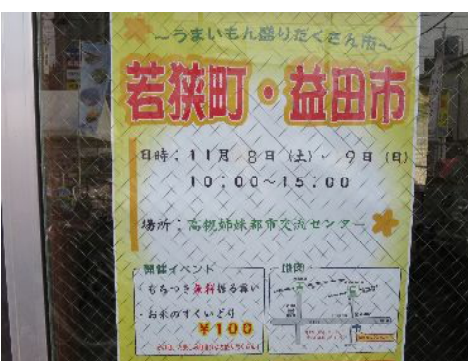 ～うまいもん盛りだくさん市～
若狭町・益田市
日時：11月 8日（土）～ 9日（日）
10：00～15：00
場所：高槻姉妹都市交流センター
開催イベント
・もちつき無料振る舞い
・お米のすくいどり
￥100
地図